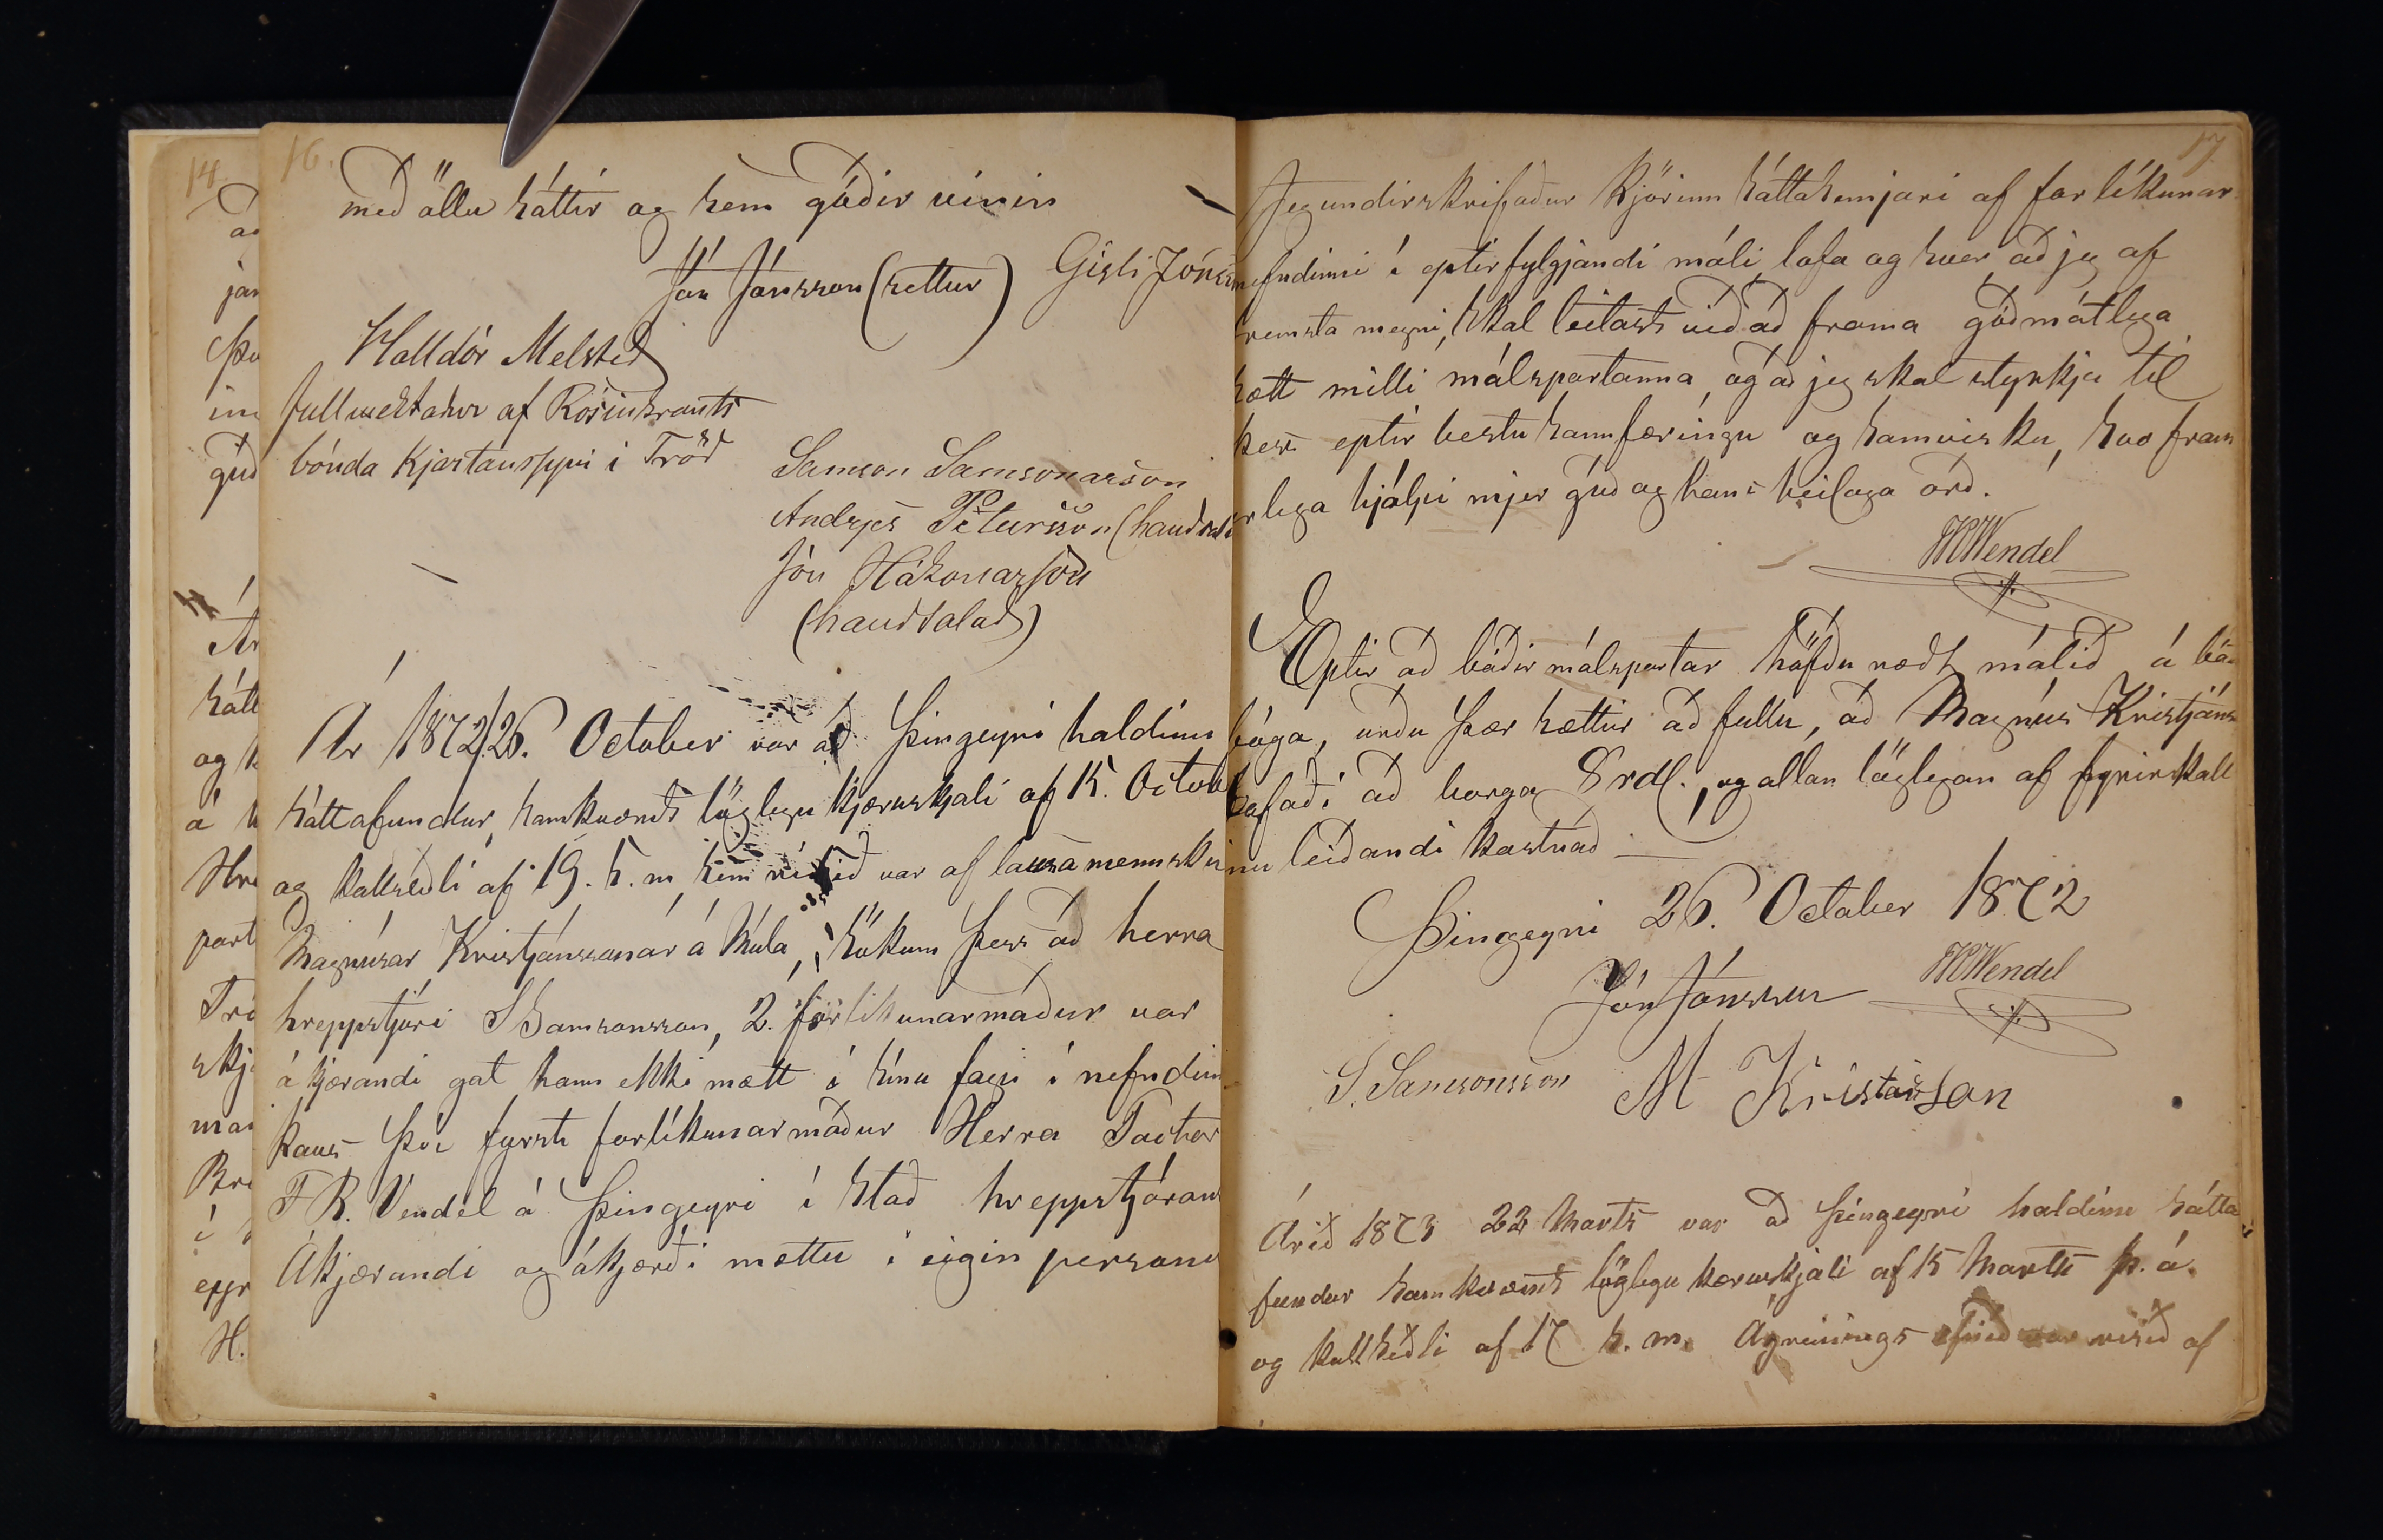 16.
með öllu sáttir og sem góðir vinir
Jón Jónsson (settur) Gisli Jónss
Halldór Melsted
fullmektadur af Rosinkrants
bónda Kjartanssyni i Tröd
Samson Samsonarson
Andrjes Pétursson (handsal
Jón Hákonarson
(handsalad)
Ár 1872, 26. October var að Þingeyri haldinn
sáttafundur, samkvæmt löglegu kjæruskjali af 15. Octob
og kallseðli af 19. s. m, sem risið var af lausamennsku
Magnúsar Kristjánssonar á Múla, sökum þess að herra
hreppstjóri S Samsonsson, 2. forlíkunarmaður var
ákjærandi gat hann ekki mætt í sínu fagi í nefndinn
kaus því fyrsti forlíkunarmaður Herra Factor
F R. Vendel á Þingeyri í stað hreppstjórans
Ákjærandi og ákjærði mættu í eigin persónu
17
Jeg undirskrifaður kjörinn sáttasemjari af forlíkunar
nefndinni í eptirfylgjandi máli, lofa og sver, að jeg af
fremsta megni, skal leitast við að frama góðmátlega
sætt milli málspartanna, og að jeg skal styrkja til
þess eptir bestu sannfæringu og samvisku, svo fram
arlega hjálpi mjer guð og hans heilaga orð.
FRWendel
Eptir að báðir málspartar höfðu rædt málið á bá
bóga, urðu þær sættir að fullu, að Magnús Kristjáns
lofaði að borga 8 rdl., og allan löglegan af fyrirkall
inu leiðandi kostnað
Þingeyri 26. October 1872
Jón Jónsson FRWendel
S. Samsonsson M Kristjánsson
Árið 1873 22 Marts var að Þingeyri haldinn sátta
fundur samkvæmt löglegu kæruskjali af 15 Marts þ. á.
og kallseðli af 17 s. m. Ágreinings efnið var risið af